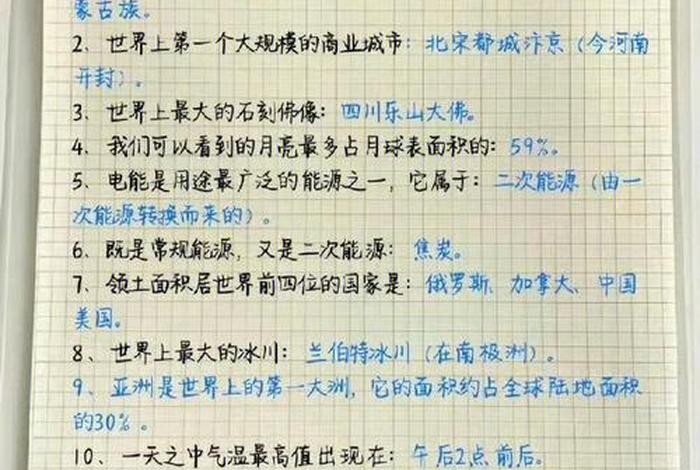 蒙古族。
2、世界上第一个大规模的商业城市：北宋都城汴京（今河南
开封）。
3、世界上最大的石刻佛像：四川乐山大佛。
4、我们可以看到的月亮最多占月球表面积的：59%。
5、电能是用途最广泛的能源之一，它属于：二次能源（由一
次能源转换而来的）。
6、既是常规能源，又是二次能源：焦炭。
7、领土面积居世界前四位的国家是：俄罗斯、加拿大、中国
美国。
8、世界上最大的冰川：兰伯特冰川（在南极洲）。
9、亚洲是世界上的第一大洲，它的面积约占全球陆地面积
的30%。
10、一天之中气温最高值出现在：午后2点前后。